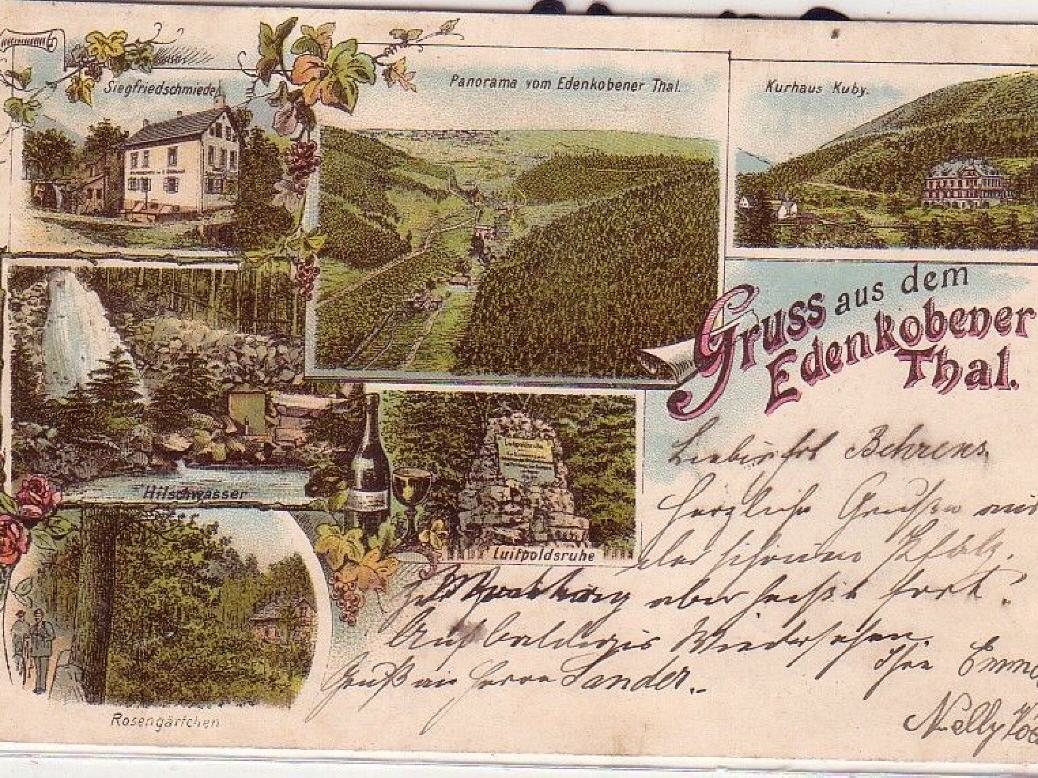 Siegfriedschmiede.
Panorama vom Edenkobener Thal.
Kurhaus Kuby.
Gruss aus dem
Edenkobener
Thal.
Hilschwasser
Luitpoldsruhe
Rosengärtchen
Behrens
herzliche Grüße aus
der schönen Pfalz.
aber fort.
Auf baldiges Wiedersehen.
Ihre Emma
Gruß an Herrn Sander.
Nelly